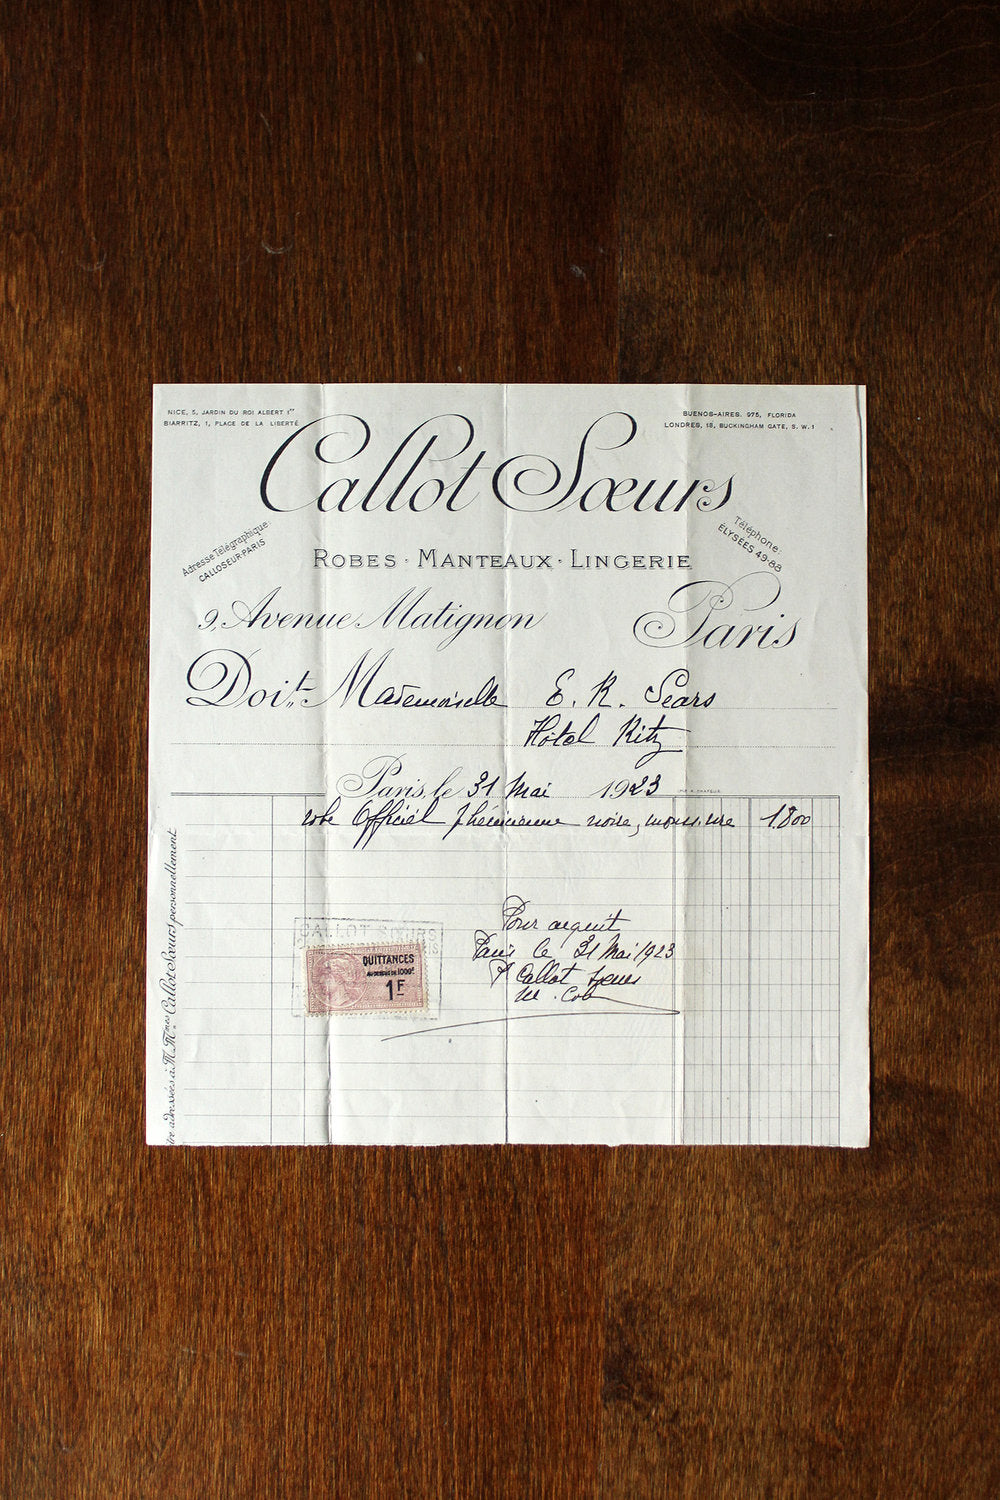 NICE, 5, JARDIN DU ROI ALBERT 1er
BIARRITZ, 1, PLACE DE LA LIBERTÉ
BUENOS-AIRES. 975, FLORIDA
LONDRES, 18, BUCKINGHAM GATE, S. W. 1
Callot Sœurs
Adresse Télégraphique
CALLOSEUR-PARIS
Téléphone:
ÉLYSÉES 49-88
ROBES · MANTEAUX · LINGERIE
9, Avenue Matignon Paris
Doit Mademoiselle E. R. Sears
Hôtel Ritz
Paris, le 31 Mai 1923
robe Officiel phénicienne noire, 1.800
Pour acquit
Paris le 31 Mai 1923
Callot Sœurs
CALLOT SŒURS
QUITTANCES
AU DESSUS DE 1000F
1F
être adressées à M.Mmes Callot Sœurs personnellement